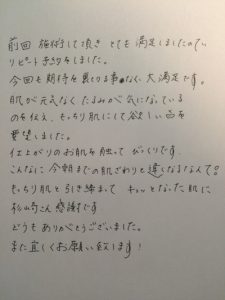 前回 施術して頂き とても満足しましたので、
リピート予約をしました。
今回も期待を裏切る事なく、大満足です。
肌が元気なく たるみが気になっている
のを伝え、もっちり肌にして欲しい旨を
要望しました。
仕上がりのお肌を触って びっくりです。
こんなに今朝までの肌ざわりと違しなるなんて!
もっちり肌と引き締まって キュッとなった肌に
杉山さん感謝です
どうもありがとうございました。
また宜しくお願い致します!